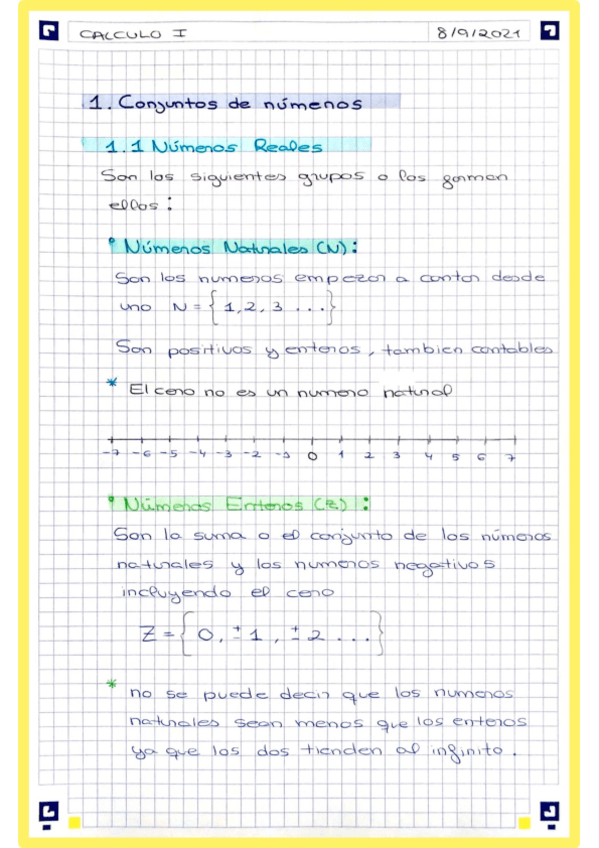 CALCULO I 8/9/2021
1. Conjuntos de números
1.1 Números Reales
Son los siguientes grupos o los forman
ellos:
Números Naturales (N):
Son los numeros empezar a contar desde
uno N = { 1, 2, 3 ... }
Son positivos y enteros, tambien contables
* El cero no es un numero natural
-7 -6 -5 -4 -3 -2 -1 0 1 2 3 4 5 6 7
Números Enteros (Z):
Son la suma o el conjunto de los números
naturales y los numeros negativos
incluyendo el cero
Z = { 0, ±1, ±2 ... }
* no se puede decir que los numeros
naturales sean menos que los enteros
ya que los dos tienden al infinito.